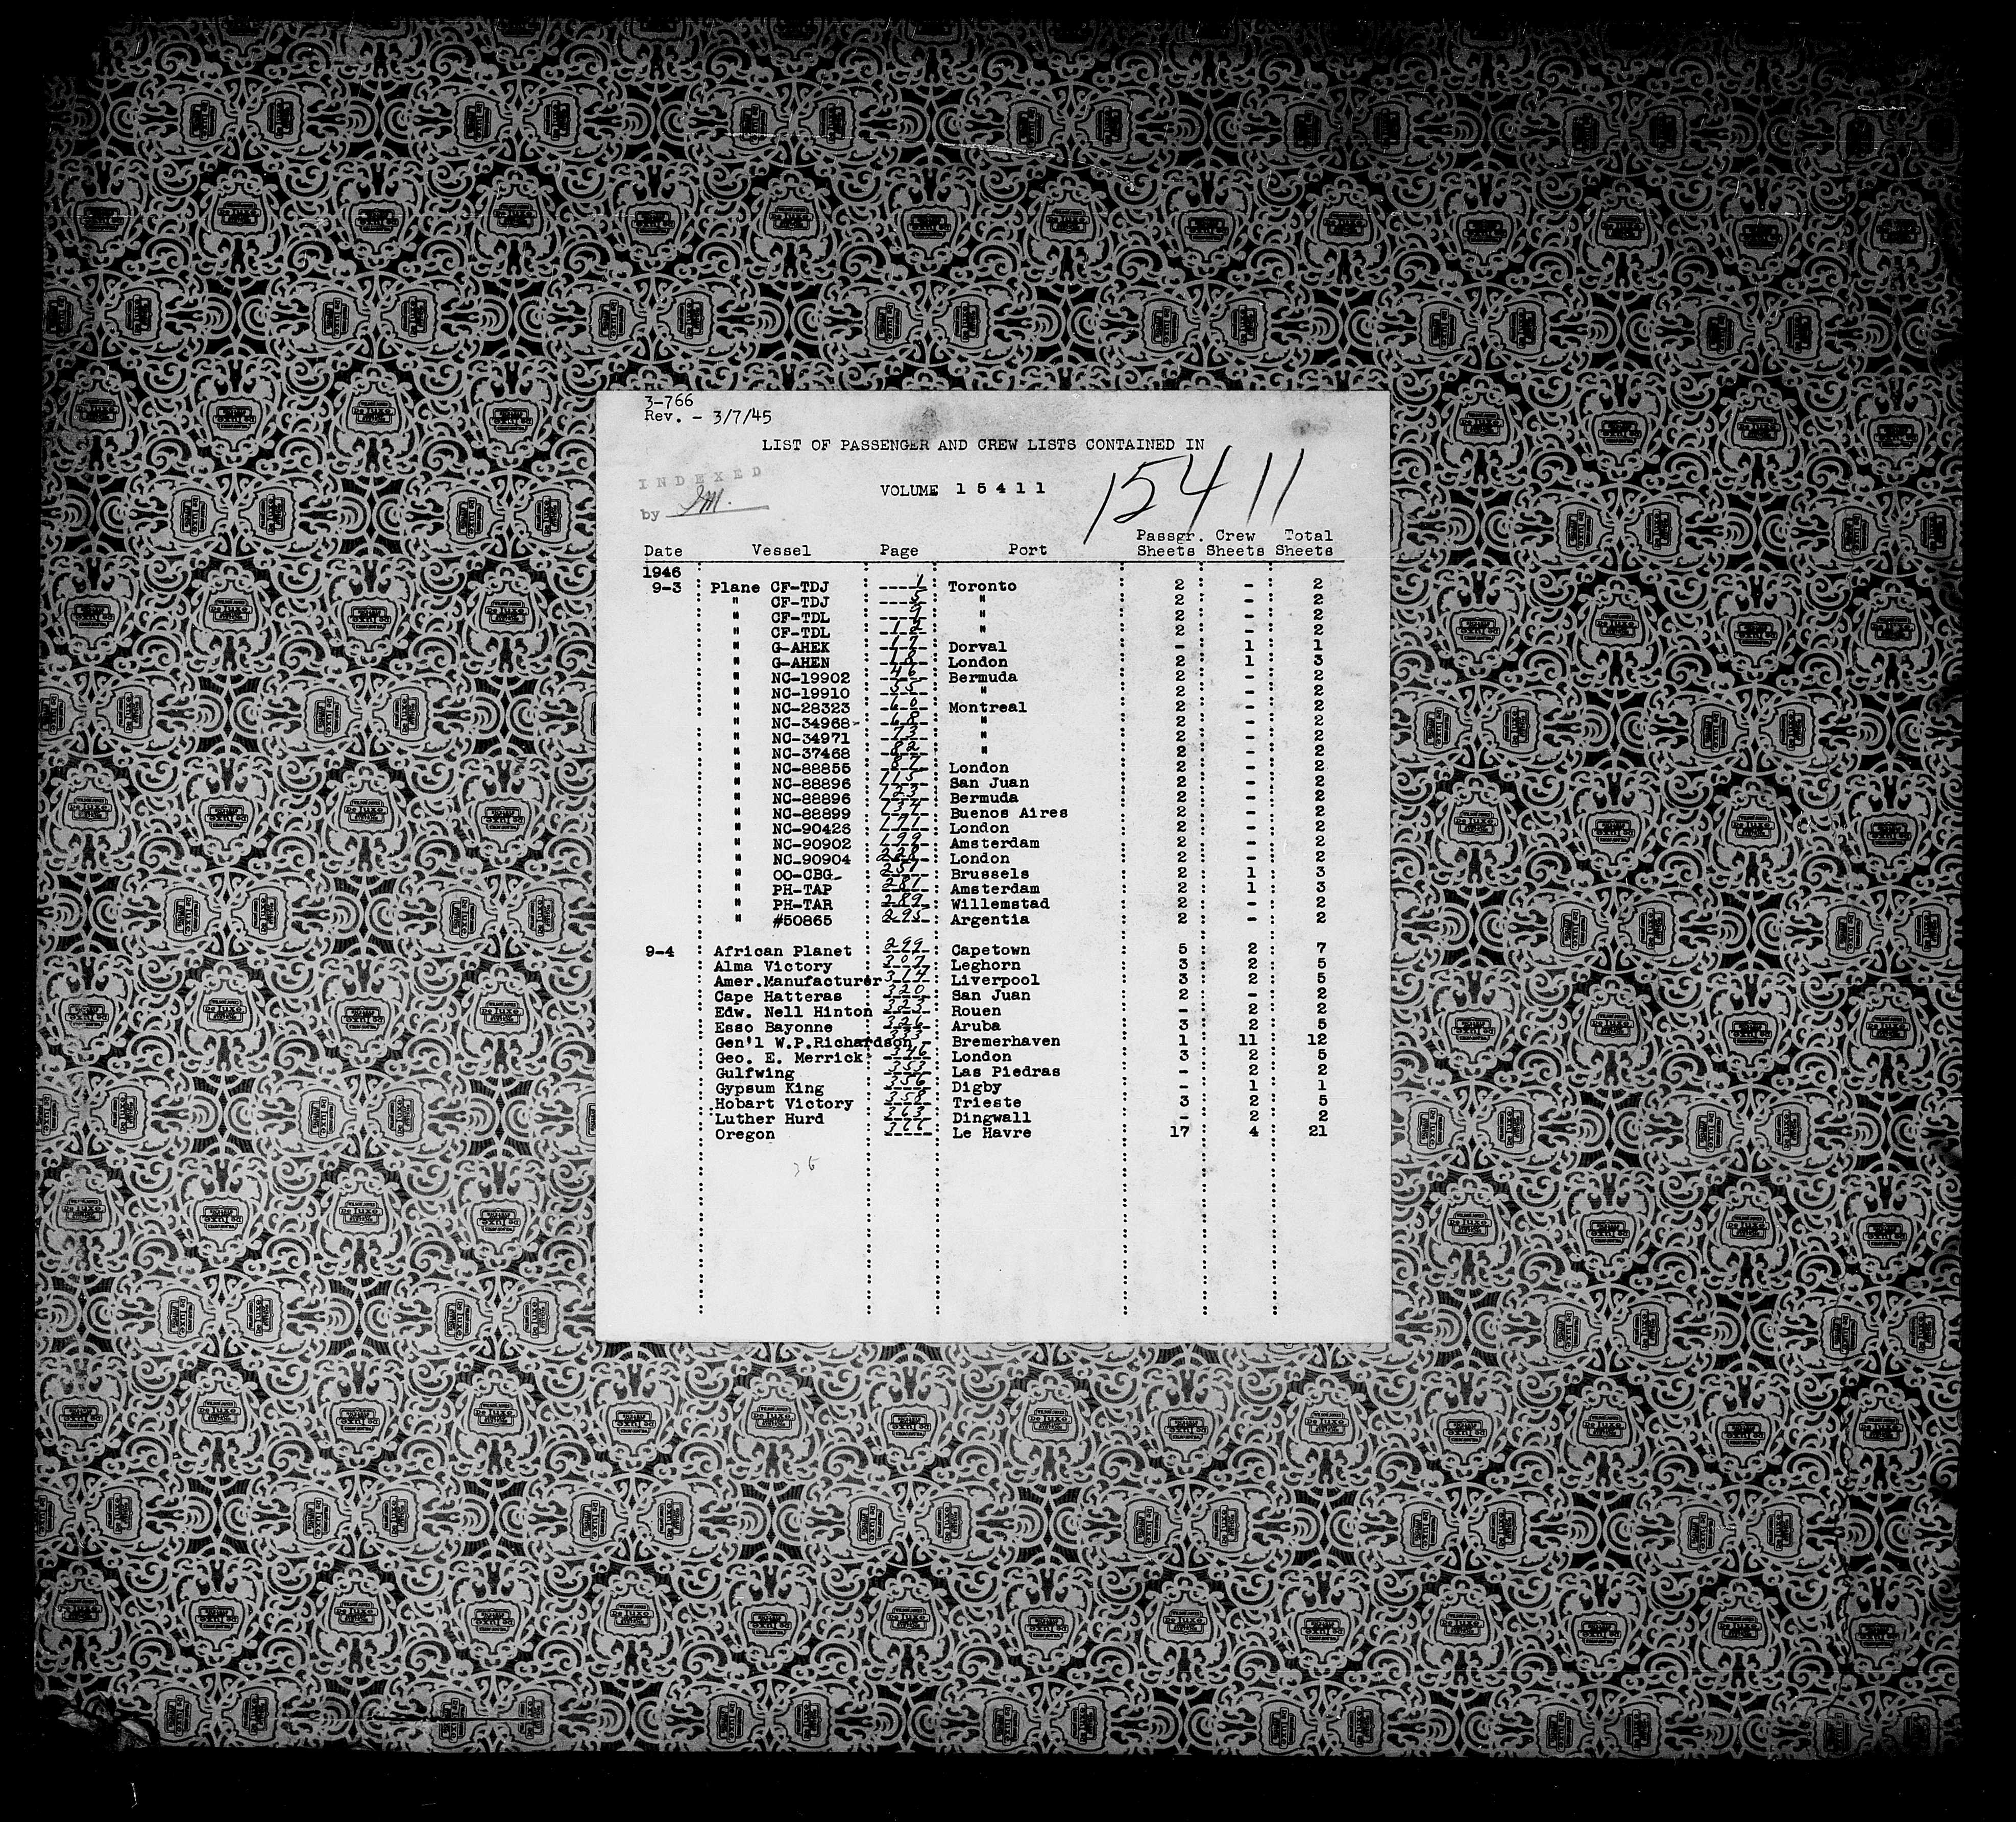 3-766
Rev. - 3/7/45
LIST OF PASSENGER AND CREW LISTS CONTAINED IN
INDEXED
VOLUME 1 5 4 1 1
15411
by JM.
Passgr. Crew Total
Date Vessel Page Port Sheets Sheets Sheets
1946
9-3 Plane CF-TDJ 1 Toronto 2 - 2
" CF-TDJ 5 " 2 - 2
" CF-TDL 9 " 2 - 2
" CF-TDL 12 " 2 - 2
" G-AHEK 17 Dorval - 1 1
" G-AHEN 18 London 2 1 3
" NC-19902 46 Bermuda 2 - 2
" NC-19910 55 " 2 - 2
" NC-28323 60 Montreal 2 - 2
" NC-34968 68 " 2 - 2
" NC-34971 73 " 2 - 2
" NC-37468 82 " 2 - 2
" NC-88855 87 London 2 - 2
" NC-88896 115 San Juan 2 - 2
" NC-88896 123 Bermuda 2 - 2
" NC-88899 134 Buenos Aires 2 - 2
" NC-90426 London 2 - 2
" NC-90902 199 Amsterdam 2 - 2
" NC-90904 228 London 2 - 2
" OO-CBG 251 Brussels 2 1 3
" PH-TAP 281 Amsterdam 2 1 3
" PH-TAR 289 Willemstad 2 - 2
" #50865 295 Argentia 2 - 2
9-4 African Planet 299 Capetown 5 2 7
Alma Victory 307 Leghorn 3 2 5
Amer.Manufacturer 314 Liverpool 3 2 5
Cape Hatteras 320 San Juan 2 - 2
Edw. Nell Hinton 323 Rouen - 2 2
Esso Bayonne 326 Aruba 3 2 5
Gen'l W.P.Richardson 333 Bremerhaven 1 11 12
Geo. E. Merrick 346 London 3 2 5
Gulfwing 353 Las Piedras - 2 2
Gypsum King 356 Digby - 1 1
Hobart Victory 358 Trieste 3 2 5
Luther Hurd 363 Dingwall - 2 2
Oregon 366 Le Havre 17 4 21
36